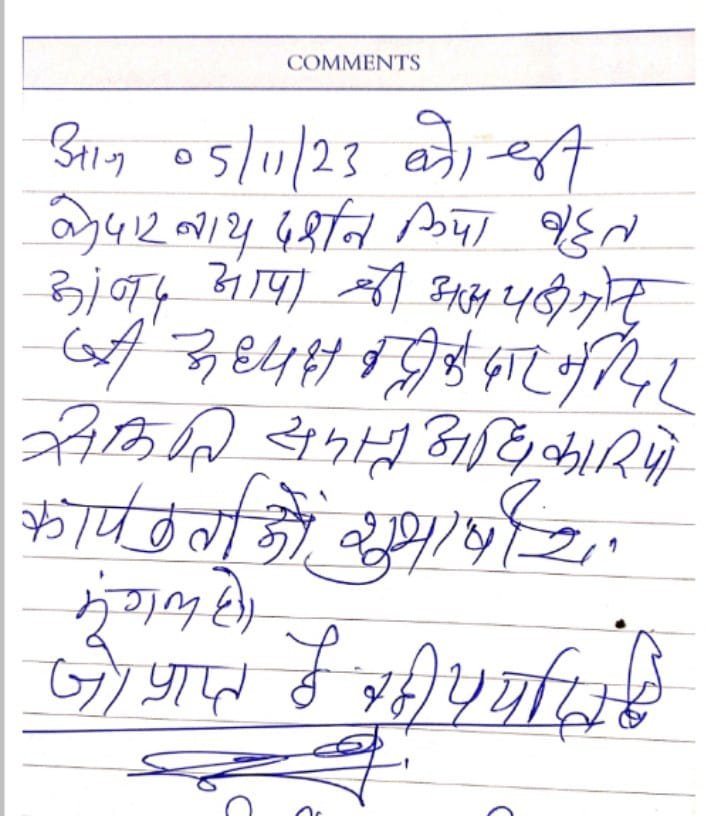 COMMENTS
आज 05/11/23 को श्री
केदारनाथ दर्शन किया बहुत
आनंद आया श्री अजय
जी अध्यक्ष बद्रीकेदार मंदिर
समिति समस्त अधिकारियों
कार्यकर्ताओं शुभाशीष
मंगल हो
जो प्राप्त है वही पर्याप्त है